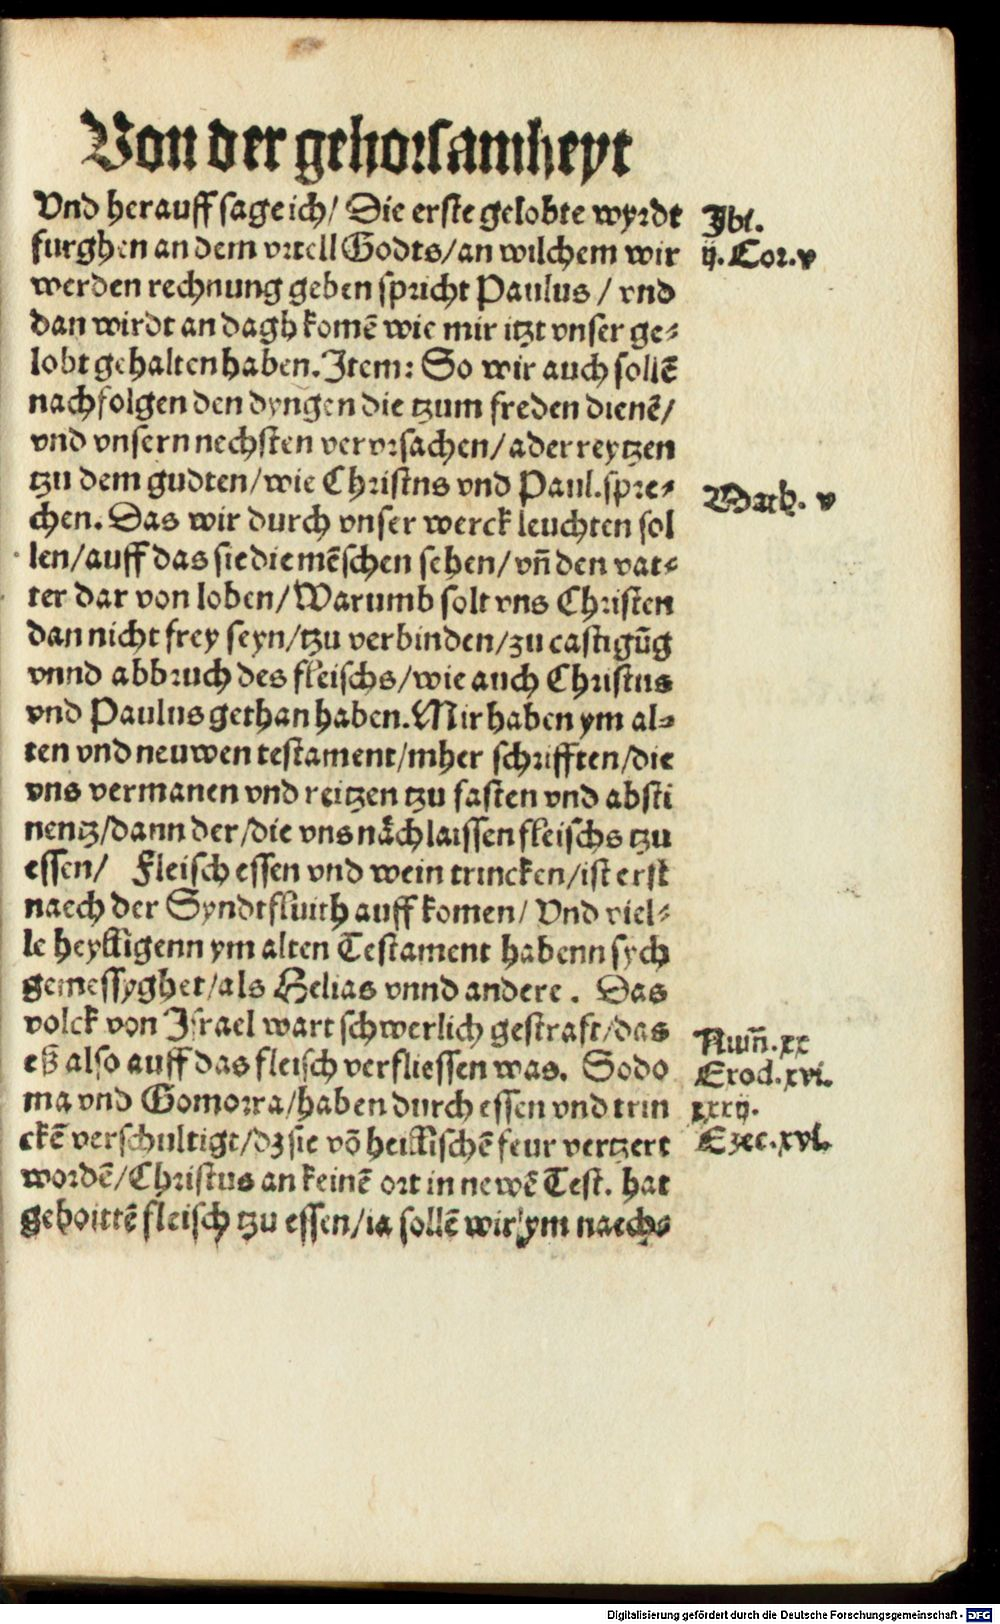 Von der gehorsamheyt
Vnd herauff sage ich/ Die erste gelobte wyrdt
furghen an dem vrtell Godts/an wilchem wir
werden rechnung geben spricht Paulus / vnd
dan wirdt an dagh komē wie mir itzt vnser ge⸗
lobt gehalten haben. Item: So wir auch sollē
nachfolgen den dyngen die tzum freden dienē/
vnd vnsern nechsten vervrsachen/ ader reytzen
tzu dem gudten/wie Christns vnd Paul.spre⸗
chen. Das wir durch vnser werck leuchten sol
len/auff das sie die mēschen sehen/ vn̄ den vat⸗
ter dar von loben/ Warumb solt vns Christen
dan nicht frey seyn/tzu verbinden/zu castigūg
vnnd abbruch des fleischs/wie auch Christus
vnd Paulus gethan haben. Mir haben ym al⸗
ten vnd neuwen testament/mher schrifften/die
vns vermanen vnd reitzen tzu fasten vnd absti
nentz/dann der/die vns nächlaissen fleischs tzu
essen/ Fleisch essen vnd wein trincken/ist erst
naech der Syndtfluith auff komen/ Vnd viel⸗
le heylligenn ym alten Testament habenn sych
gemessyghet/als Helias vnnd andere. Das
volck von Israel wart schwerlich gestraft/das
eß also auff das fleisch verfliessen was. Sodo
ma vnd Gomorra/haben durch essen vnd trin
ckē verschultigt/dz sie vō hellischē feur vertzert
wordē/Christus an keinē ort in newē Test. hat
geboittē fleisch tzu essen/ia sollē wir ym naech⸗
Ibl.
ij. Cor. v
Math. v
Num̄. xx
Exod. xvi.
xxxij.
Ezec. xvl.
Digitalisierung gefördert durch die Deutsche Forschungsgemeinschaft - DFG